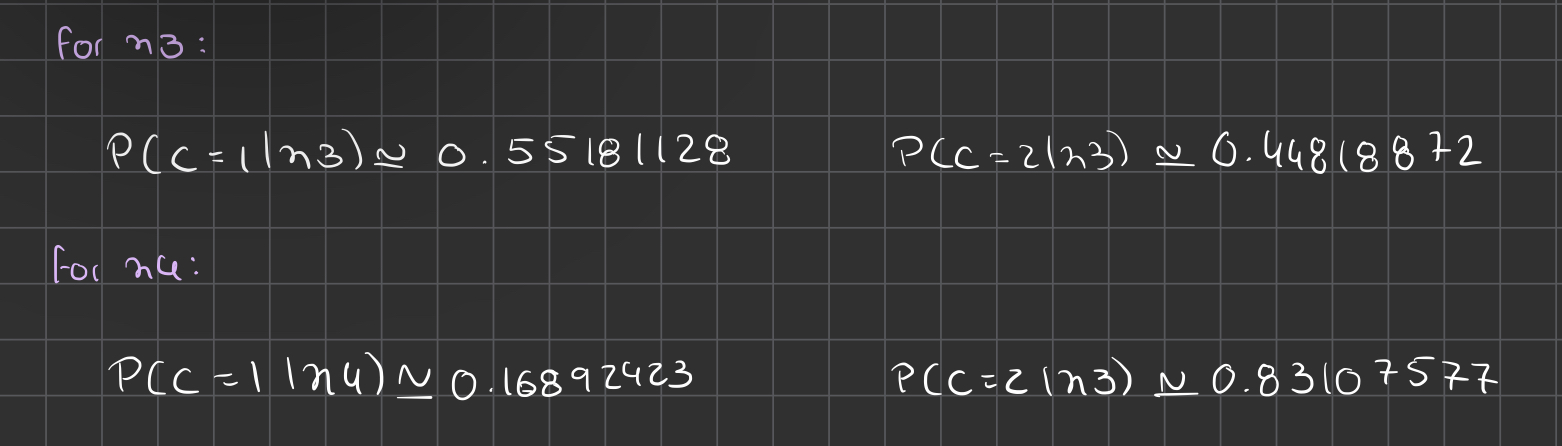 for x3:
P(C=1|x3) ≃ 0.55181128 P(C=2|x3) ≃ 0.44818872
for x4:
P(C=1|x4) ≃ 0.16892423 P(C=2|x3) ≃ 0.83107577